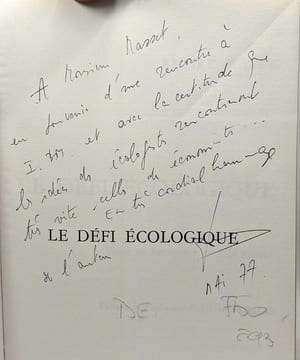 A Monsieur Masset,
en souvenir d'une rencontre à
et avec la certitude que
les idées des écologistes rencontreront
très vite celles des économistes...
En très cordial hommage
LE DÉFI ÉCOLOGIQUE
de l'auteur
MAI 77.
DE